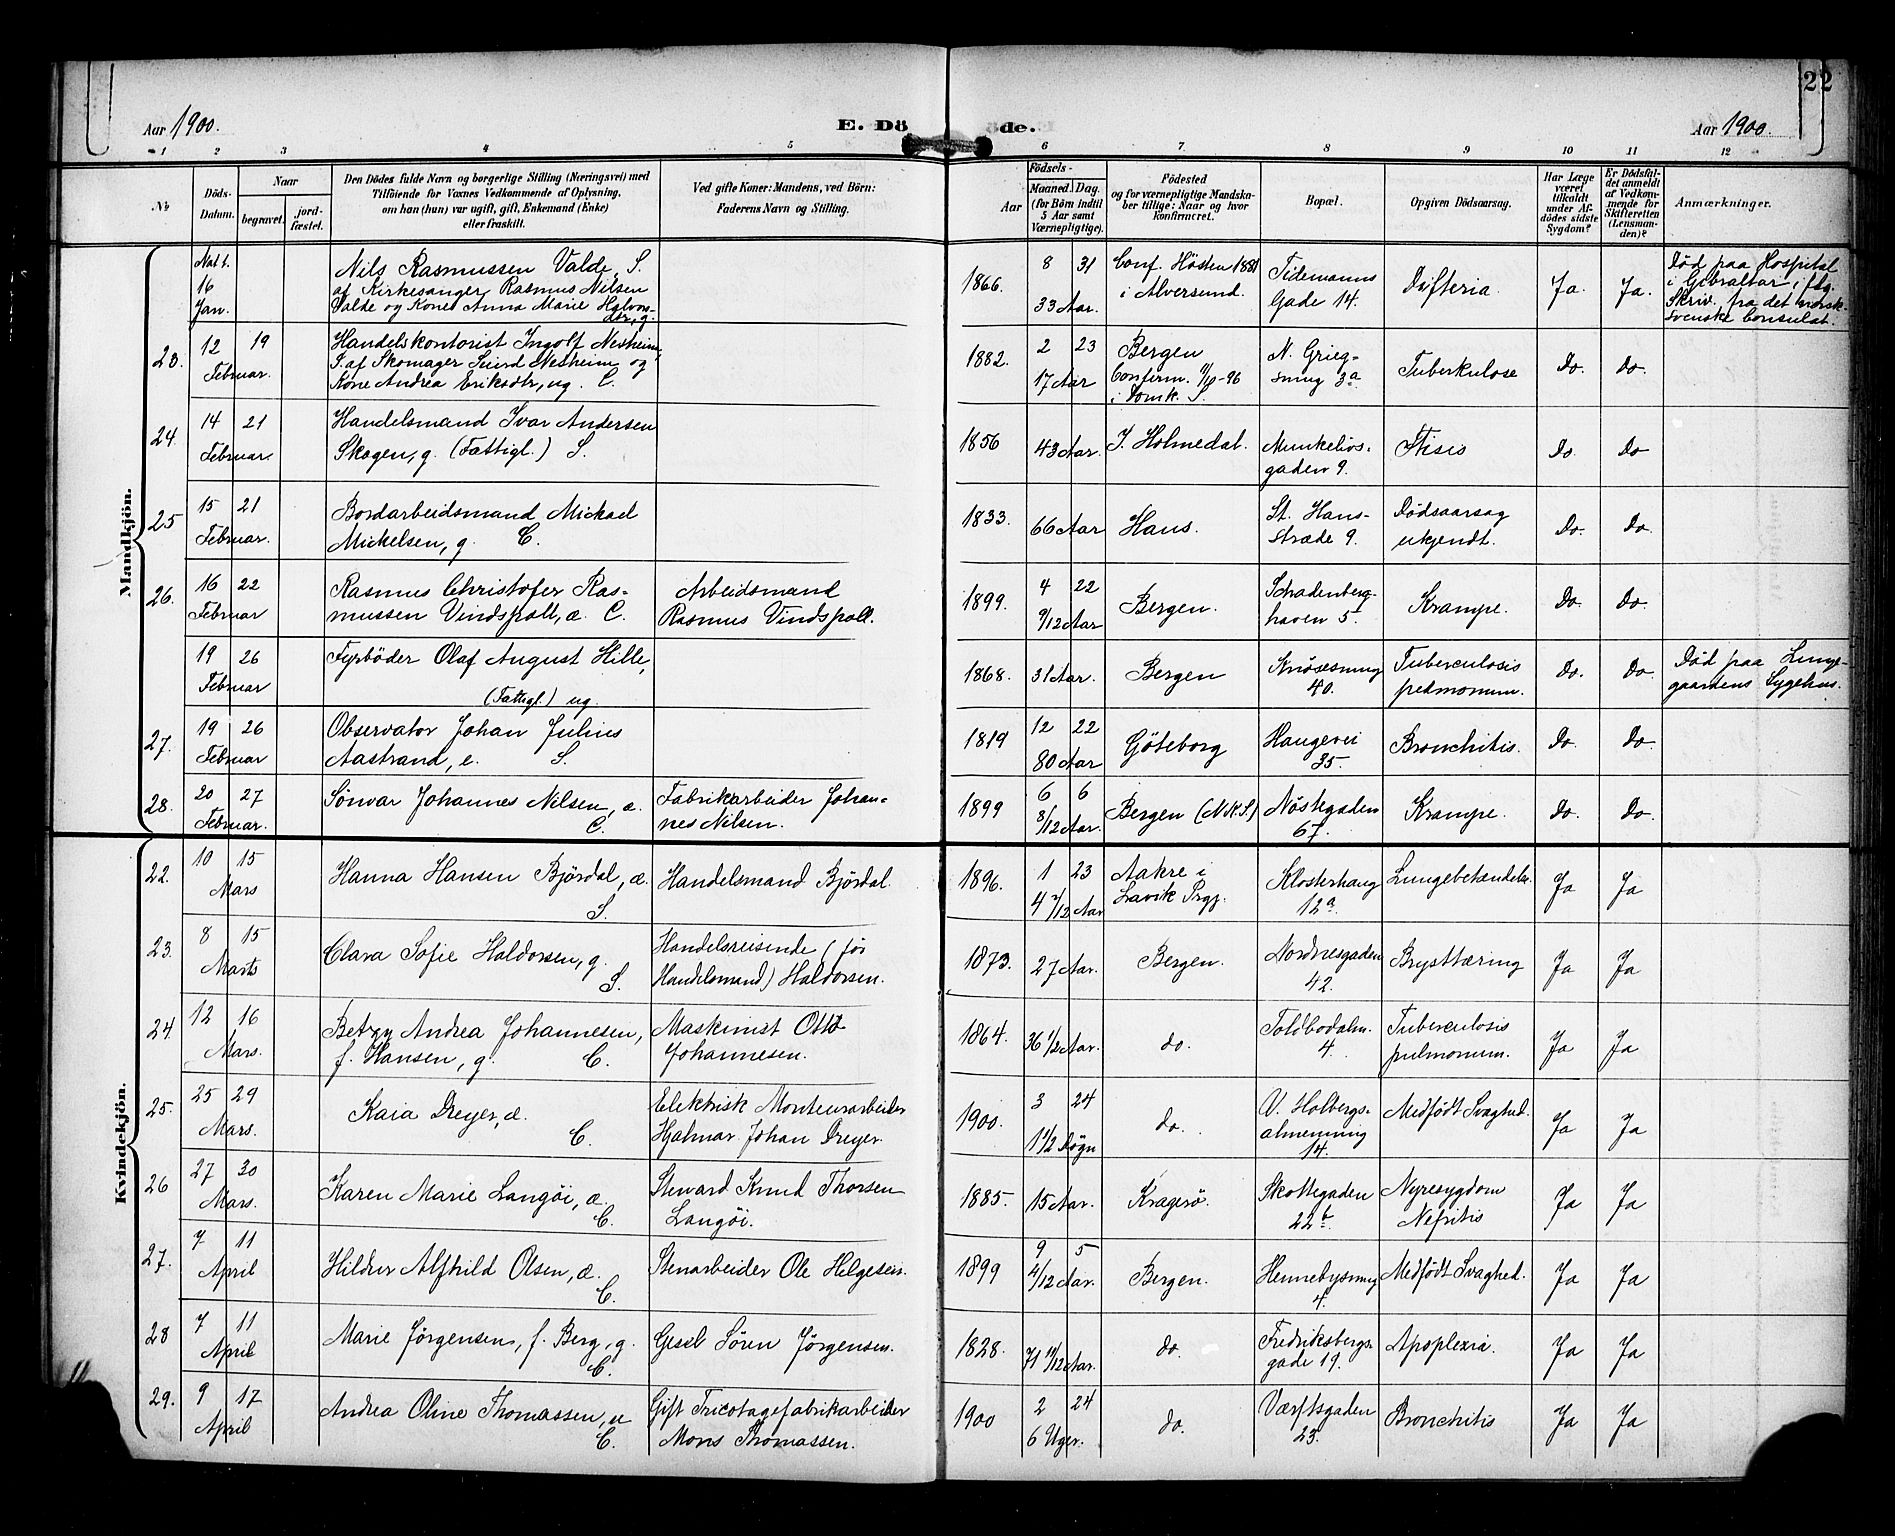 22
Aar 1900.
E. Dö de.
Aar 1900.
1 2 3 4 5 6 7 8 9 10 11 12
№
Döds-
Datum.
Naar
begravet.
jord-
fæstet.
Den Dödes fulde Navn og borgerlige Stilling (Næringsvei) med
Tilföiende for Voxnes Vedkommende af Oplysning,
om han (hun) var ugift, gift, Enkemand (Enke)
eller fraskilt.
Ved gifte Koner: Mandens, ved Börn:
Faderens Navn og Stilling.
Födsels-
Aar
Maaned.
Dag.
(for Börn indtil
5 Aar samt
Værnepligtige).
Födested
og for værnepligtige Mandska-
ber tillige: Naar og hvor
Konfirmeret.
Bopæl.
Opgiven Dödsaarsag.
Har Læge
været
tilkaldt
under Af-
dödes sidste
Sygdom?
Er Dödsfal-
det anmeldt
af Vedkom-
mende for
Skifteretten
(Lensman-
den)?
Anmærkninger.
Mandkjön.
Natt.
16
Jan.
Nils Rasmussen Valde, S.
af Kirkesanger Rasmus Nilsen
Valde og Kone Anna Marie Halvors-
dtr, g.
1866.
8 31
33 Aar.
Conf. Hösten 1881
i Alversund.
Tidemanns
Gade 14.
Difteria.
Ja.
Ja.
Död paa Hospital
i Gibraltar, flg.
Skriv. fra det norsk-
svenske Consulat.
23.
12 19
Februar.
Handelskontorist Ingolf Nesheim,
S. af Skomager Sivert Nesheim og
Kone Andrea Eriksdtr, ug. C.
1882.
2 23
17 Aar
Bergen
Confirm. -96
i Domk. S.
N. Grieg-
smug 3a
Tuberkulose
Do.
Do.
24.
14 21
Februar.
Handelsmand Ivar Andersen
Skogen, g. (Fattigl.) S.
1856
43 Aar.
I. Holmedal.
Munkelivs-
gaden 9.
Ftisis
Do.
Do
25
15 21
Februar.
Bordarbeidsmand Mickael
Mickelsen, g. C.
1833.
66 Aar
Haus.
St. Hans-
stræde 9.
Dödsaarsag
ukjendt.
Do.
Do.
26.
16 22
Februar
Rasmus Christofer Ras-
mussen Vindspoll, æ. C.
Arbeidsmand
Rasmus Vindspoll.
1899.
4 22
9/12 Aar
Bergen.
Schadenberg-
haven 5.
Krampe.
Do.
Do.
19 26
Februar
Fyrböder Olaf August Hille,
(Fattigl.) ug.
1868.
31 Aar.
Bergen
Knösesmug
40.
Tuberculosis
pulmonum.
Do.
Do.
Död paa Lunge-
gaardens Sygehus.
27.
19 26
Februar
Observator Johan Julius
Aastrand, e. S.
1819
12 22
80 Aar
Göteborg
Haugevei
35.
Bronchitis.
Do.
Do.
28.
20 27
Februar.
Sönvar Johannes Nilsen, æ.
C.
Fabrikarbeider Johan-
nes Nilsen.
1899
6 6
8/12 Aar.
Bergen (N.K.S.)
Nöstegaden
67.
Krampe.
Do.
Do.
Kvindekjön.
22.
10 15
Mars
Hanna Hansen Björdal, æ.
S.
Handelsmand Björdal.
1896.
1 23
4 1/12 Aar
Aakre i
Lavik Prgj.
Klosterhaug
12a.
Lungebetændelse.
Ja
Ja
23.
8 15
Marts
Clara Sofie Haldorsen, g.
S.
Handelsreisende (för
Handelsmand) Haldorsen.
1873.
27 Aar.
Bergen.
Nordnesgaden
42.
Brysttæring
Ja
Ja
24.
12 16
Mars.
Betzy Andrea Johannesen,
f. Hansen, g. C.
Maskinist Otto
Johannesen.
1864.
36 1/2 Aar.
do.
Toldbodalm.
4.
Tuberculosis
pulmonum.
Ja
Ja
25.
25 29
Mars.
Kaia Dreyer, æ.
C.
Elektrisk Monteurarbeider
Hjalmar Johan Dreyer.
1900.
3 24
1 1/2 Døgn
do.
V. Holbergs-
almenning
14.
Medfödt Svaghed.
Ja
Ja
26
27 30
Mars.
Karen Marie Langöi, æ.
C.
Steward Knud Thorsen
Langöi.
1885.
15 Aar.
Kragerö.
Skottegaden
22b.
Nyresygdom
Nefritis
Ja
Ja
27.
7 11
April
Hildur Alfhild Olsen, æ.
C.
Stenarbeider Ole Helgesen.
1899
9 5
4/12 Aar.
Bergen.
Hennebysmug
4.
Medfödt Svaghed.
Ja
Ja
28
7 11
April
Marie Jörgensen, f. Berg, g.
C.
Gesel Sören Jörgensen.
1828.
71 11/12 Aar.
do.
Fredriksbergs-
gade 19.
Apoplexia.
Ja
Ja
29.
9 17
April
Andrea Oline Thomassen, u
C.
Gift Tricotagefabrikarbeider
Mons Thomassen.
1900
2 24
6 Uger.
do.
Værftsgaden
23.
Bronchitis
Ja
Ja